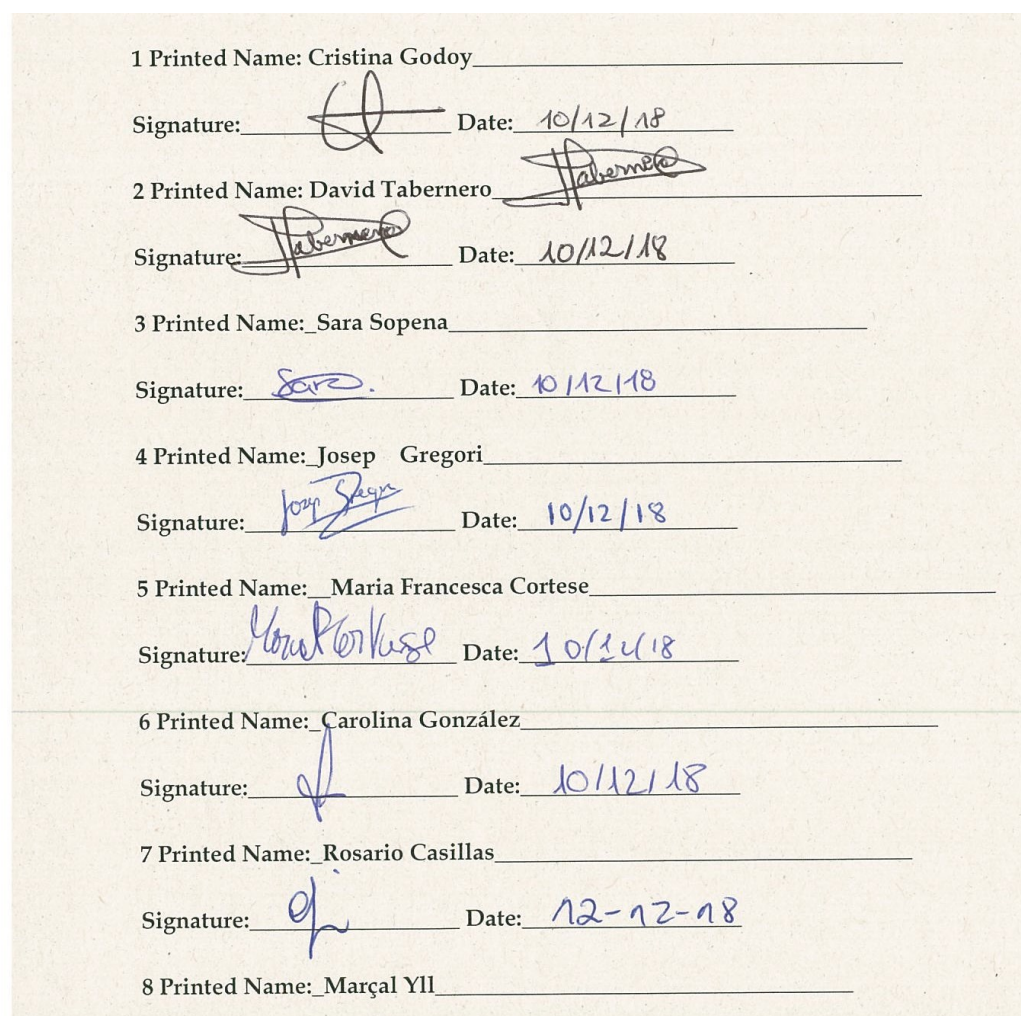 1 Printed Name: Cristina Godoy
Signature: Date: 10/12/18
2 Printed Name: David Tabernero Tabernero
Signature: Tabernero Date: 10/12/18
3 Printed Name:_Sara Sopena
Signature: Sara. Date: 10/12/18
4 Printed Name:_Josep Gregori
Signature: Josep Gregori Date: 10/12/18
5 Printed Name:__Maria Francesca Cortese
Signature: Date: 10/12/18
6 Printed Name:_Carolina González
Signature: Date: 10/12/18
7 Printed Name:_Rosario Casillas
Signature: Date: 12-12-18
8 Printed Name:_Marçal Yll